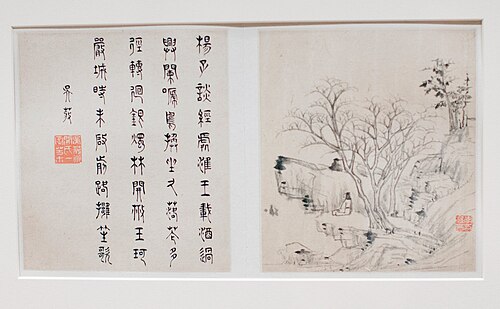 楊子談經處淮王載酒過
興闌嗁鳥換坐久落花多
徑轉迴銀燭林開散王珂
嚴城時未啟前路擁笙歌
吳